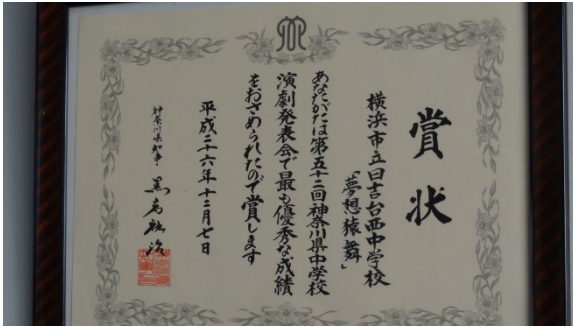 賞状
横浜市立日吉台西中学校
「夢想猿舞」
あなたがたは第五十二回神奈川県中学校
演劇発表会で最も優秀な成績
をおさめられたので賞します
平成二十六年十二月七日
神奈川県知事 黒岩祐治